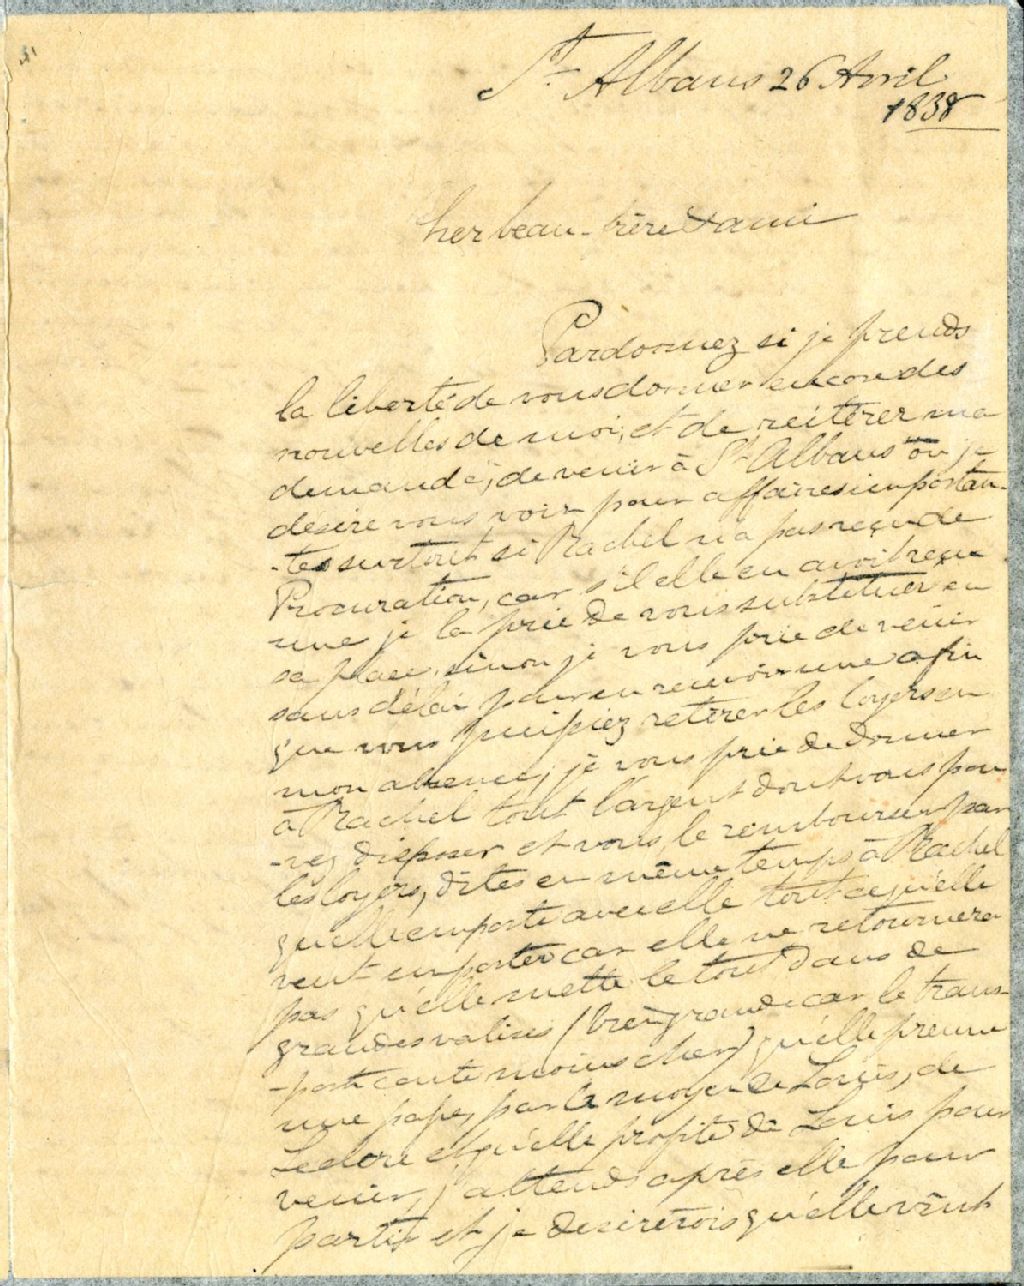 St Albans 26 Avril
1838
Cher beau-frère & ami
Pardonnez si je prends
la liberté de vous donner encore des
nouvelles de moi, et de reitérer ma
demande, de venir à St Albans où je
désire vous voir pour affaires importan-
-tes surtout si Rachel n'a pas reçu de
Procuration, car s'il elle en avoit reçu
une je la prie de vous substituer en
sa place, sinon je vous prie de venir
sans délai pour en recevoir une afin
que vous puissiez retirer les loyers en
mon absence; je vous prie de donner
à Rachel tout l'argent dont vous pou
-rez disposer et vous le rembourser par
les loyers, dites en même temps à Rachel
qu'elle emporte avec elle tout ce qu'elle
veut emporter car elle ne retournera
pas qu'elle mette le tout dans de
grandes valises (bien grandes car le trans-
-port coute moins cher) qu'elle prenne
une passe, par le moyen de Louis, de
Leclere et qu'elle profite de Louis pour
venir, j'attends après elle pour
partir et je desirerois qu'elle vint